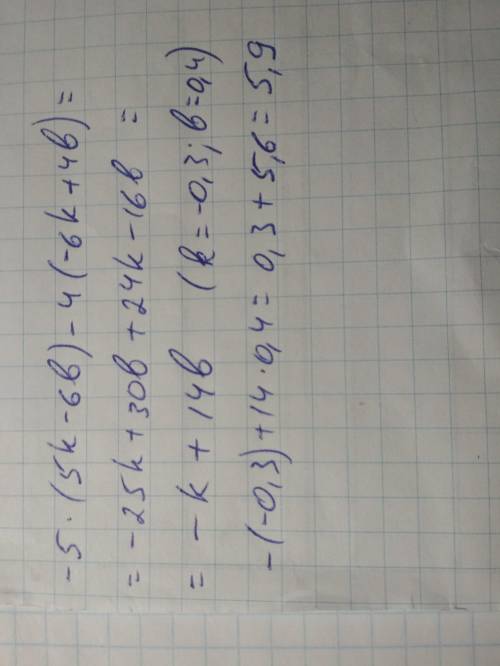 -5·(5k-6в)-4(-6k+4в)=
=-25k+30в+24k-16в =
= -k+14в (k=-0,3; в=0,4)
-(-0,3)+14·0,4=0,3+5,6=5,9